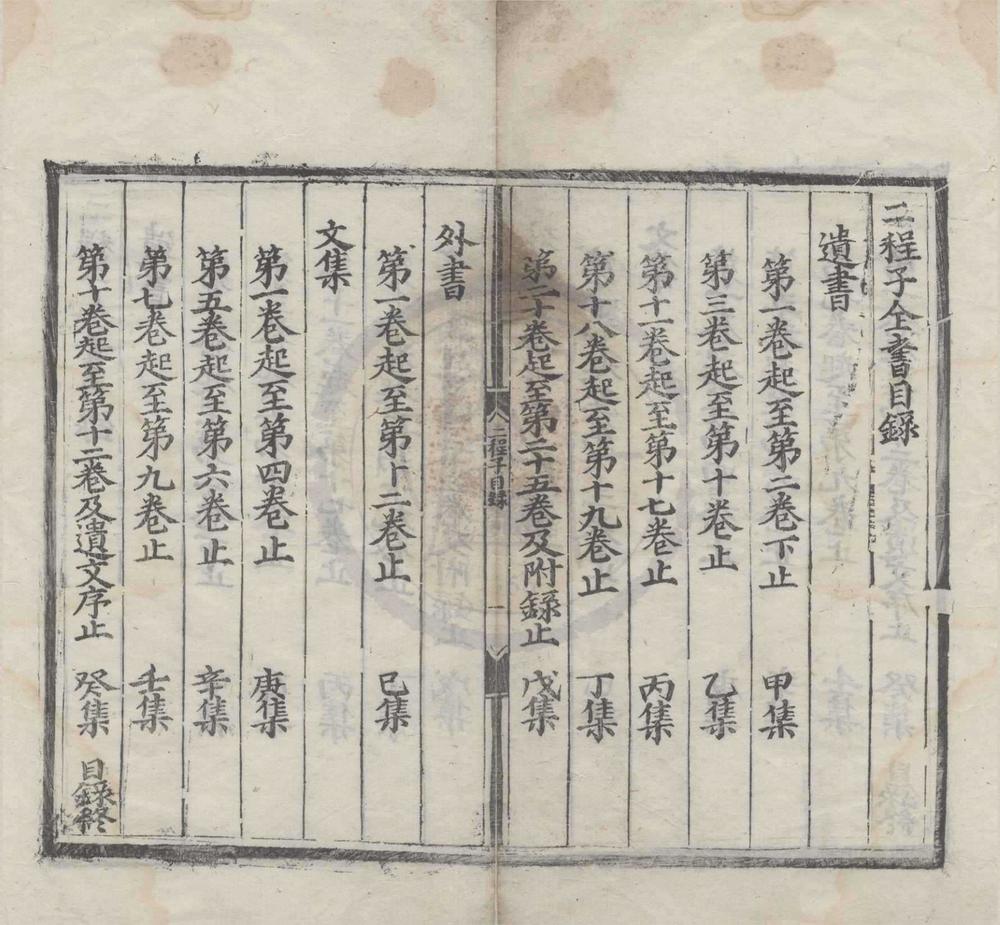 二程子全書目錄
遺書
第一卷起至第二卷下止 甲集
第三卷起至第十卷止 乙集
第十一卷起至第十七卷止 丙集
第十八卷起至第十九卷止 丁集
第二十卷起至第二十五卷及附錄止 戊集
二程子目錄 一
外書
第一卷起至第十二卷止 巳集
文集
第一卷起至第四卷止 庚集
第五卷起至第六卷止 辛集
第七卷起至第九卷止 壬集
第十卷起至第十二卷及遺文序止 癸集 目錄終